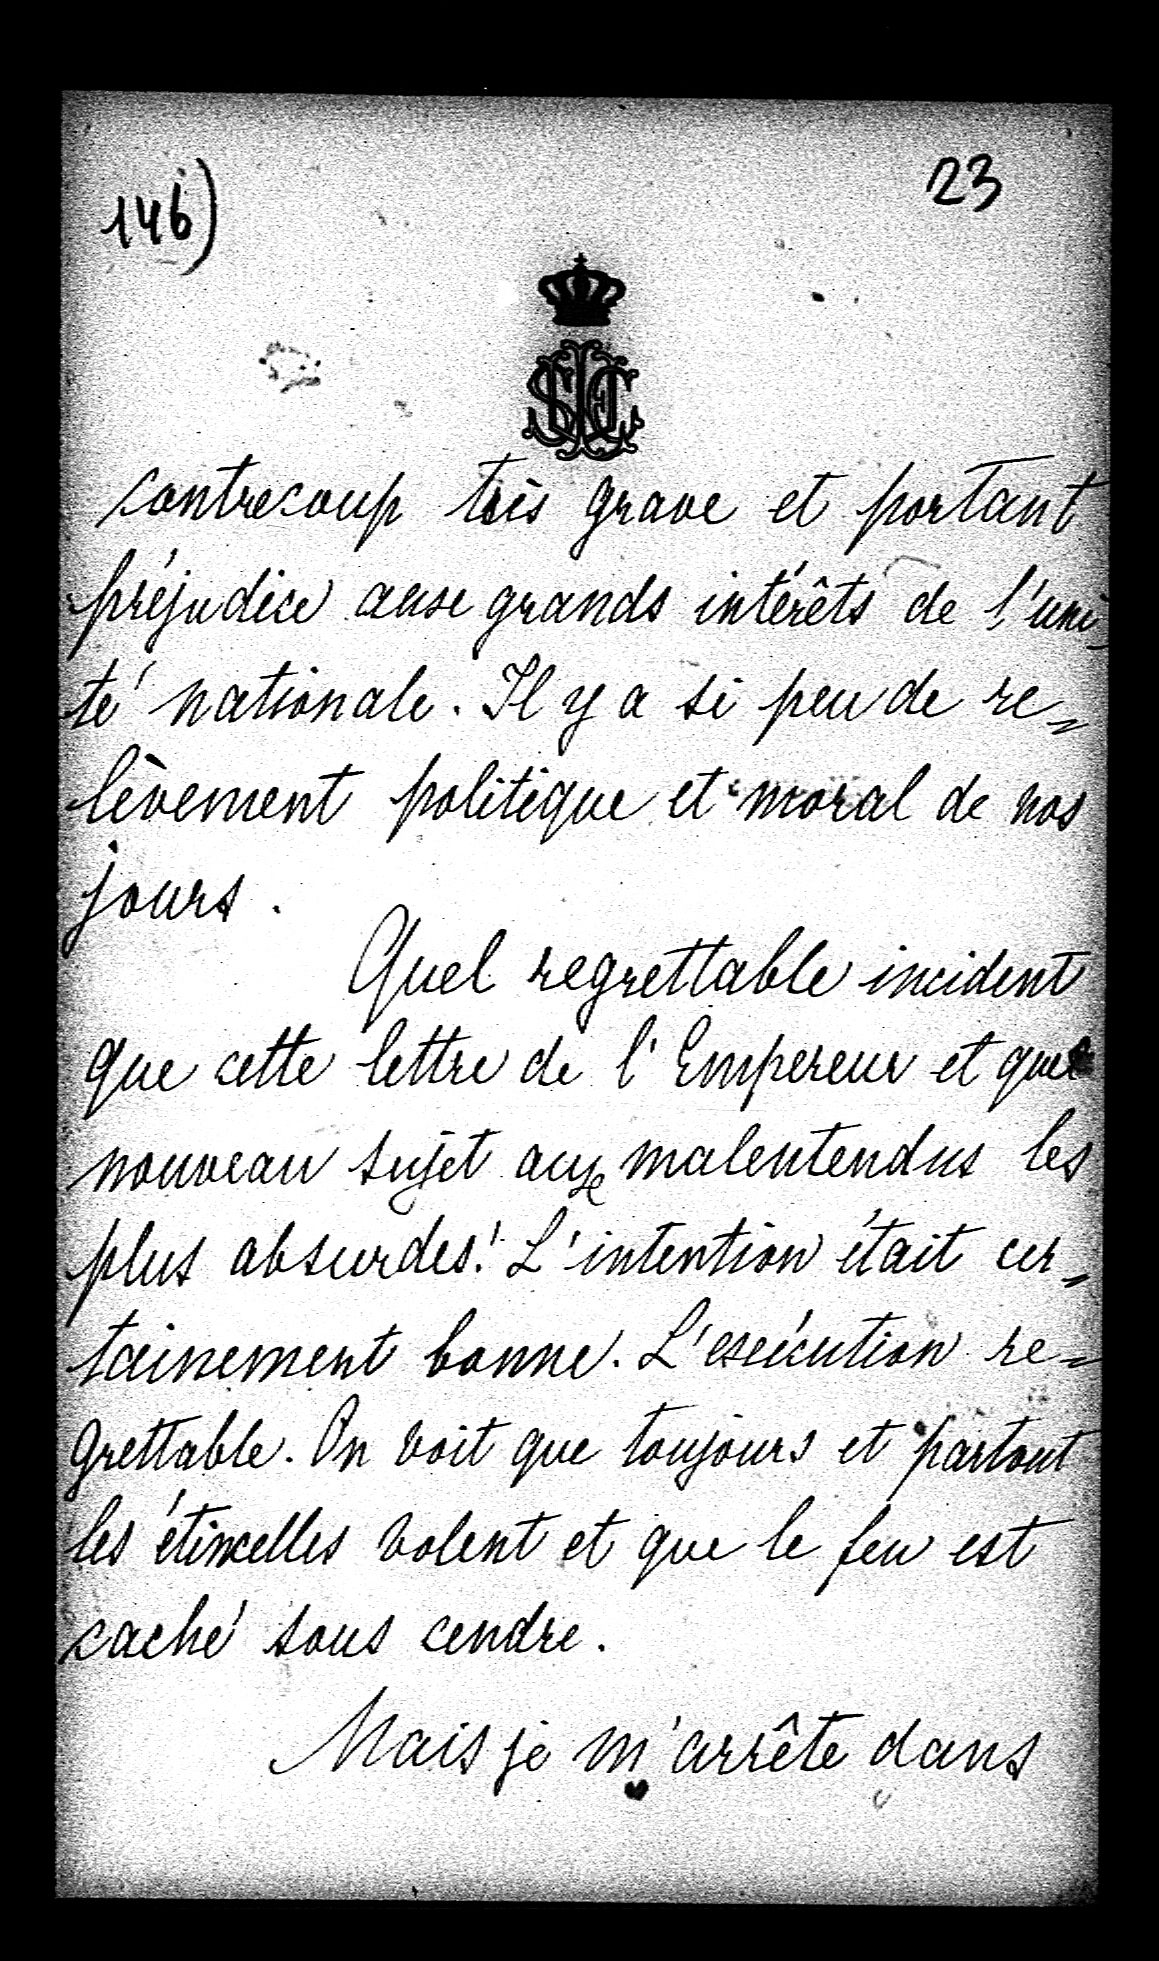 146)
23
contrecoup très grave et portant
préjudice aux grands intérêts de l'uni-
té nationale. Il y a si peu de re-
lèvement politique et moral de nos
jours.
Quel regrettable incident
que cette lettre de l'Empereur et quel
nouveau sujet aux malentendus les
plus absurdes! L'intention était cer-
tainement bonne. L'exécution re-
grettable. On voit que toujours et partout
les étincelles volent et que le feu est
caché sous cendre.
Mais je m'arrête dans